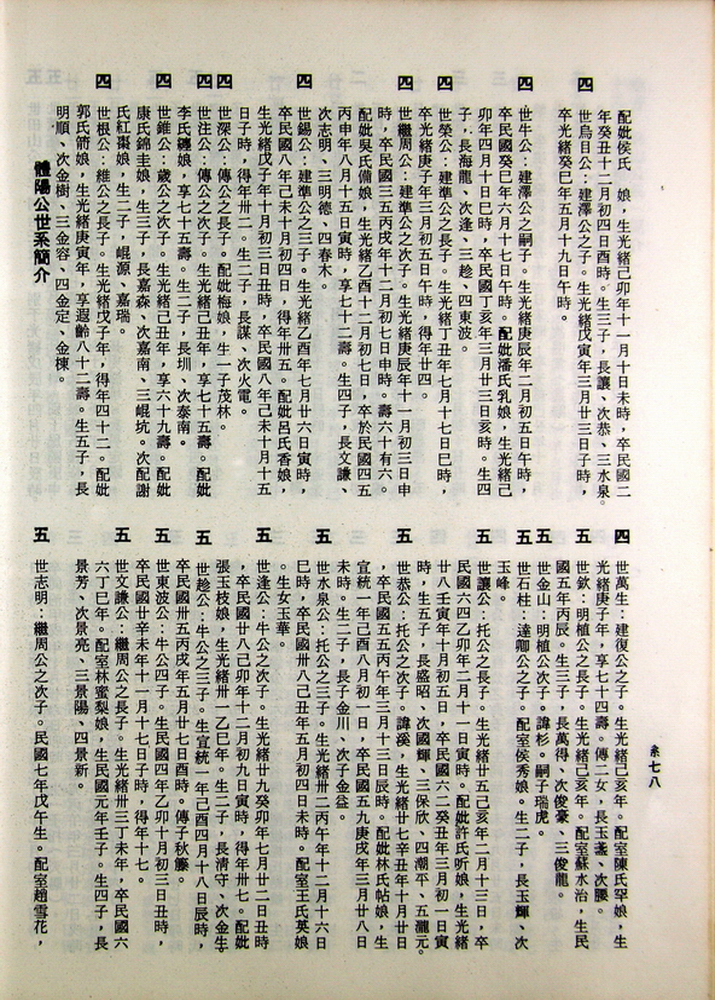 配妣侯氏　娘，生光緒己卯年十一月十日未時，卒民國二
年癸丑十二月初四日酉時。生三子，長讓、次恭、三水泉。
四　世烏目公：建澤公之子。生光緒戊寅年三月廿三日子時，
卒光緒癸巳年五月十九日午時。
四　世牛公：建澤公之嗣子。生光緒庚辰年二月初五日午時，
卒民國癸巳年六月十七日午時。配妣潘氏乳娘，生光緒己
卯年四月十日巳時，卒民國丁亥年三月廿三日亥時。生四
子，長海龍、次逢、三趁、四東波。
四　世榮公：建準公之長子。生光緒丁丑年七月十七日巳時，
卒光緒庚子年三月初五日午時，得年廿四。
四　世繼周公：建準公之次子。生光緒庚辰年十一月初三日申
時，卒民國三五丙戌年十二月初七日申時。壽六十有六。
配妣吳氏備娘，生光緒乙酉十二月初七日，卒於民國四五
丙申年八月十五日寅時，享七十二壽。生四子，長文謙、
次志明、三明德、四春木。
四　世錫公：建準公之三子。生光緒乙酉年七月廿六日寅時，
卒民國八年己未十月初四日，得年卅五。配妣呂氏香娘，
生光緒戊子年十月初三日丑時，卒民國八年己未十月十五
日子時，得年卅二。生二子，長謀、次火電。
四　世深公：傳公之長子。配妣梅娘，生一子茂林。
四　世注公：傳公之次子。生光緒己丑年，享七十五壽。配妣
李氏纏娘，享七十五壽。生二子，長圳、次泰南。
四　世錐公：歲公之次子。生光緒己丑年，享六十九壽。配妣
康氏錦圭娘，生三子，長嘉森、次嘉南、三崐坑。次配謝
氏紅棗娘，生二子，崐源、嘉瑞。
四　世根公：維公之長子。生光緒戊子年，得年四十二。配妣
郭氏箭娘，生光緒庚寅年，享遐齡八十二壽。生五子，長
明順、次金樹、三金容、四金定、金棟。
體陽公世系簡介
四　世萬生：建復公之子。生光緒己亥年。配室陳氏罕娘，生
光緒庚子年，享七十四壽。傳二女，長玉盞、次腰。
五　世欽：明植公之長子。生光緒己亥年。配室蘇水治，生民
國五年丙辰。生三子，長萬得、次俊豪、三俊龍。
五　世金山：明植公次子。諱杉。嗣子瑞虎。
五　世石柱：達卿公之子。配室侯秀娘。生二子，長玉輝、次
玉峰。
五　世讓公：托公之長子。生光緒廿五己亥年二月十三日，卒
民國六四乙卯年二月十一日寅時。配妣許氏听娘，生光緒
廿八壬寅年十月初五日，卒民國六二癸丑年三月初一日寅
時，生五子，長盛昭、次國輝、三保欣、四潮平、五瀧元。
五　世恭公：托公之次子。諱溪，生光緒廿七辛丑年十月廿日
，卒民國五五丙午年三月十三日辰時。配妣林氏帖娘，生
宣統一年己酉八月初一日，卒民國五九庚戌年三月廿八日
未時。生二子，長子金川、次子金益。
五　世水泉公：托公之三子。生光緒卅二丙午年十二月十六日
巳時，卒民國卅八己丑年五月初四日未時。配室王氏英娘
。生女玉華。
五　世逢公：牛公之次子。生光緒廿九癸卯年七月廿二日丑時
，卒民國廿八己卯年十二月初九日寅時，得年卅七。配妣
張玉枝娘，生光緒卅一乙巳年。生二子，長清守、次金生。
五　世趁公：牛公之三子。生宣統一年己酉四月十八日辰時，
卒民國卅五丙戌年五月廿七日酉時。傳子秋籐。
五　世東波公：牛公四子。生民國四年乙卯十月初三日丑時，
卒民國廿辛未年十一月十七日子時，得年十七。
五　世文謙公：繼周公之長子。生光緒卅三丁未年，卒民國六
六丁巳年。配室林蜜梨娘，生民國元年壬子。生四子，長
景芳、次景亮、三景陽、四景新。
五　世志明：繼周公之次子。民國七年戊午生。配室趙雪花，
系七八